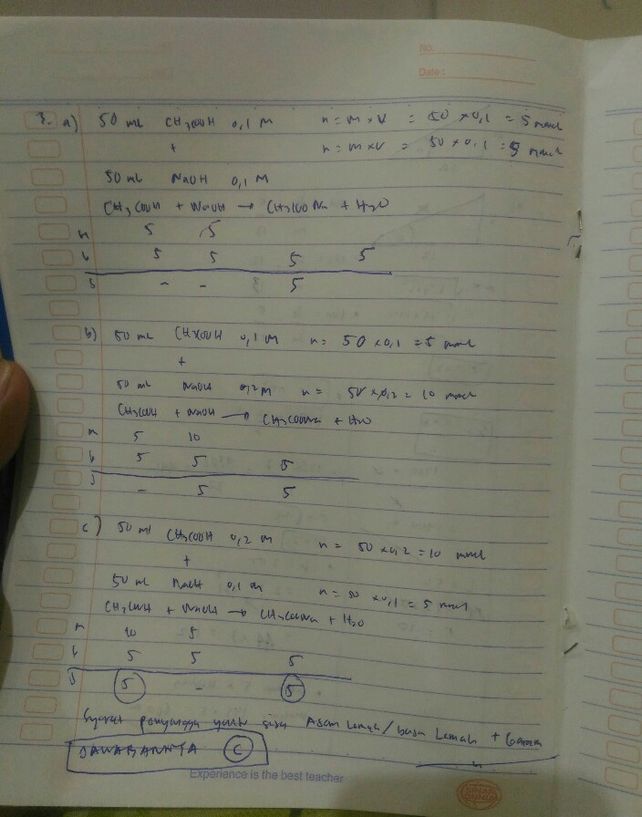 No.
Date:
3. a) 50 mL CH3COOH 0,1 M n = M x V = 50 x 0,1 = 5 mmol
+ n = M x V = 50 x 0,1 = 5 mmol
50 mL NaOH 0,1 M
CH3COOH + NaOH → CH3COONa + H2O
m 5 5
b 5 5 5 5
s - - 5
b) 50 mL CH3COOH 0,1 M n = 50 x 0,1 = 5 mmol
+
50 mL NaOH 0,2 M n = 50 x 0,2 = 10 mmol
CH3COOH + NaOH → CH3COONa + H2O
m 5 10
b 5 5 5
s - 5 5
c) 50 ml CH3COOH 0,2 M n = 50 x 0,2 = 10 mmol
+
50 mL NaOH 0,1 M n = 50 x 0,1 = 5 mmol
CH3COOH + NaOH → CH3COONa + H2O
m 10 5
b 5 5 5
s 5 - 5
Syarat penyangga yaitu sisa Asam Lemah/basa Lemah + Garam
JAWABANNYA C
Experience is the best teacher
SINAR DUNIA